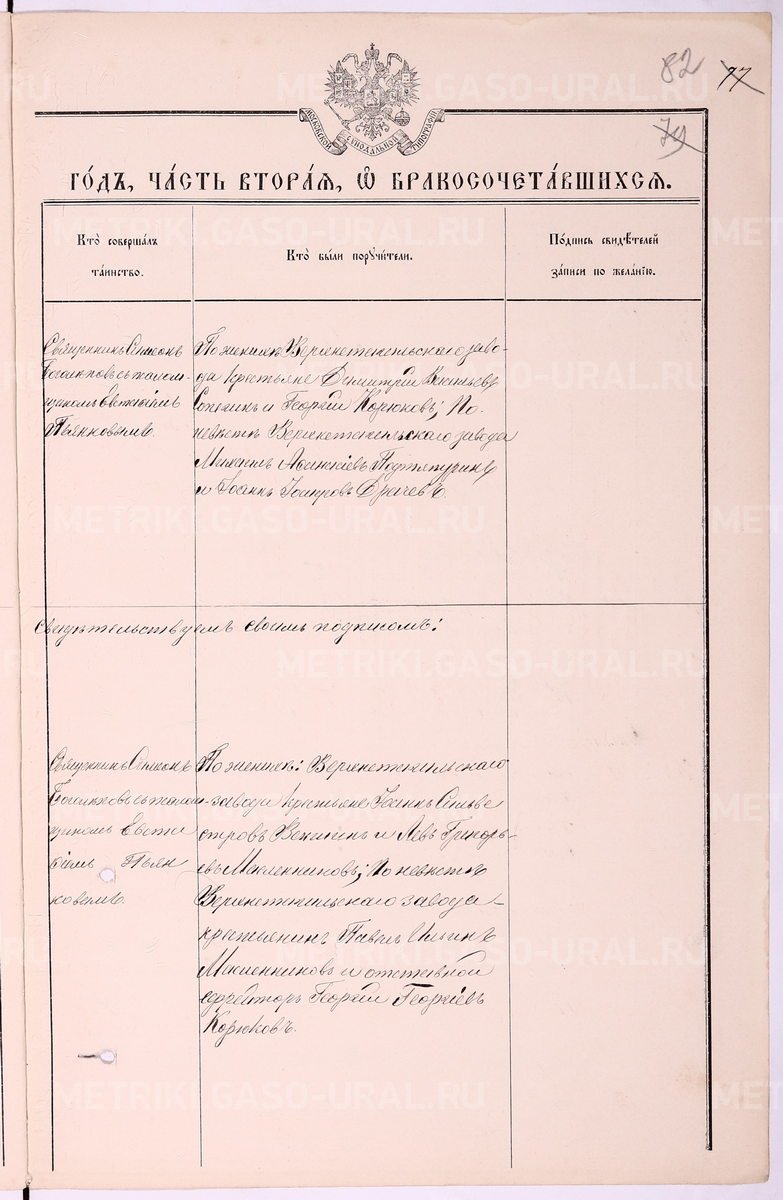 82 77
79
МОСКОВСКОЙ СУНОДАЛЬНОЙ ТИПОГРАФІИ
ГО́ДЪ, ЧА́СТЬ ВТОРА́Я, Ѽ БРАКОСОЧЕТА́ВШИХСЯ.
Кто̀ соверша́лъ
та́инство.
Кто̀ бы́ли порꙋчи́тели.
По́дпись свидѣ́телей
за́писи по жела́нїю.
Священникъ Симеонъ
Богомъ псаломщ-
щикомъ Евстафіемъ
Пьянковымъ
По женихѣ Верхнетагильскаго заво-
да крестьяне Димитрій Васильевъ
и Георгій Корюковъ; По
невѣстѣ Верхнетагильскаго завода
Михаилъ
и Іоаннъ Драчевъ.
Свидѣтельствуемъ своимъ подписомъ:
Священникъ Симеонъ
съ псалом-
щикомъ Евста
фіемъ Пьян
ковымъ
По женихѣ: Верхнетагильскаго
завода крестьяне Іоаннъ Сильве
стровъ и Левъ Григорь-
евъ Масленниковъ; По невѣстѣ
Верхнетагильскаго завода
крестьянинъ Павелъ Ильинъ
Масленниковъ и отставной
ефрейторъ Георгій Георгіевъ
Корюковъ.
METRIKI.GASO-URAL.RU